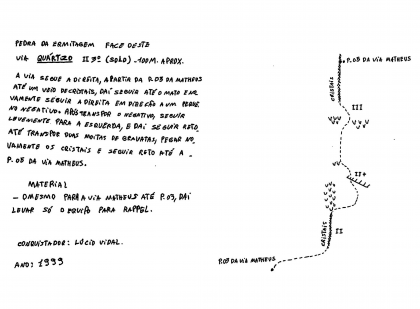 PEDRA DA ERMITAGEM FACE OESTE
VIA QUÁRTZO II 3º (SOLO) - 100M. APROX.
A VIA SEGUE A DIREITA, APARTIR DA P.03 DA MATHEUS
ATÉ UM VEIO DE CRISTAIS, DAÍ SEGUIR ATÉ O MATO E
VAMENTE SEGUIR A DIREITA EM DIREÇÃO A UM
NO NEGATIVO. APÓS TRANSPOR O NEGATIVO, SEGUIR
LEVEMENTE PARA A ESQUERDA, E DAÍ SEGUIR RETO
ATÉ TRANSPOR DUAS MOITAS DE GRAVATAS, PEGAR NO
VAMENTE OS CRISTAIS E SEGUIR RETO ATÉ A
P.05 DA VIA MATHEUS.
MATERIAL
- O MESMO PARA A VIA MATHEUS ATÉ P.03, DAÍ
LEVAR SÓ O EQUIPO PARA RAPPEL.
CONQUISTADOR: LÚCIO VIDAL.
ANO: 1999
P.05 DA VIA MATHEUS
CRISTAIS
III
II+
CRISTAIS
II
P.03 DA VIA MATHEUS